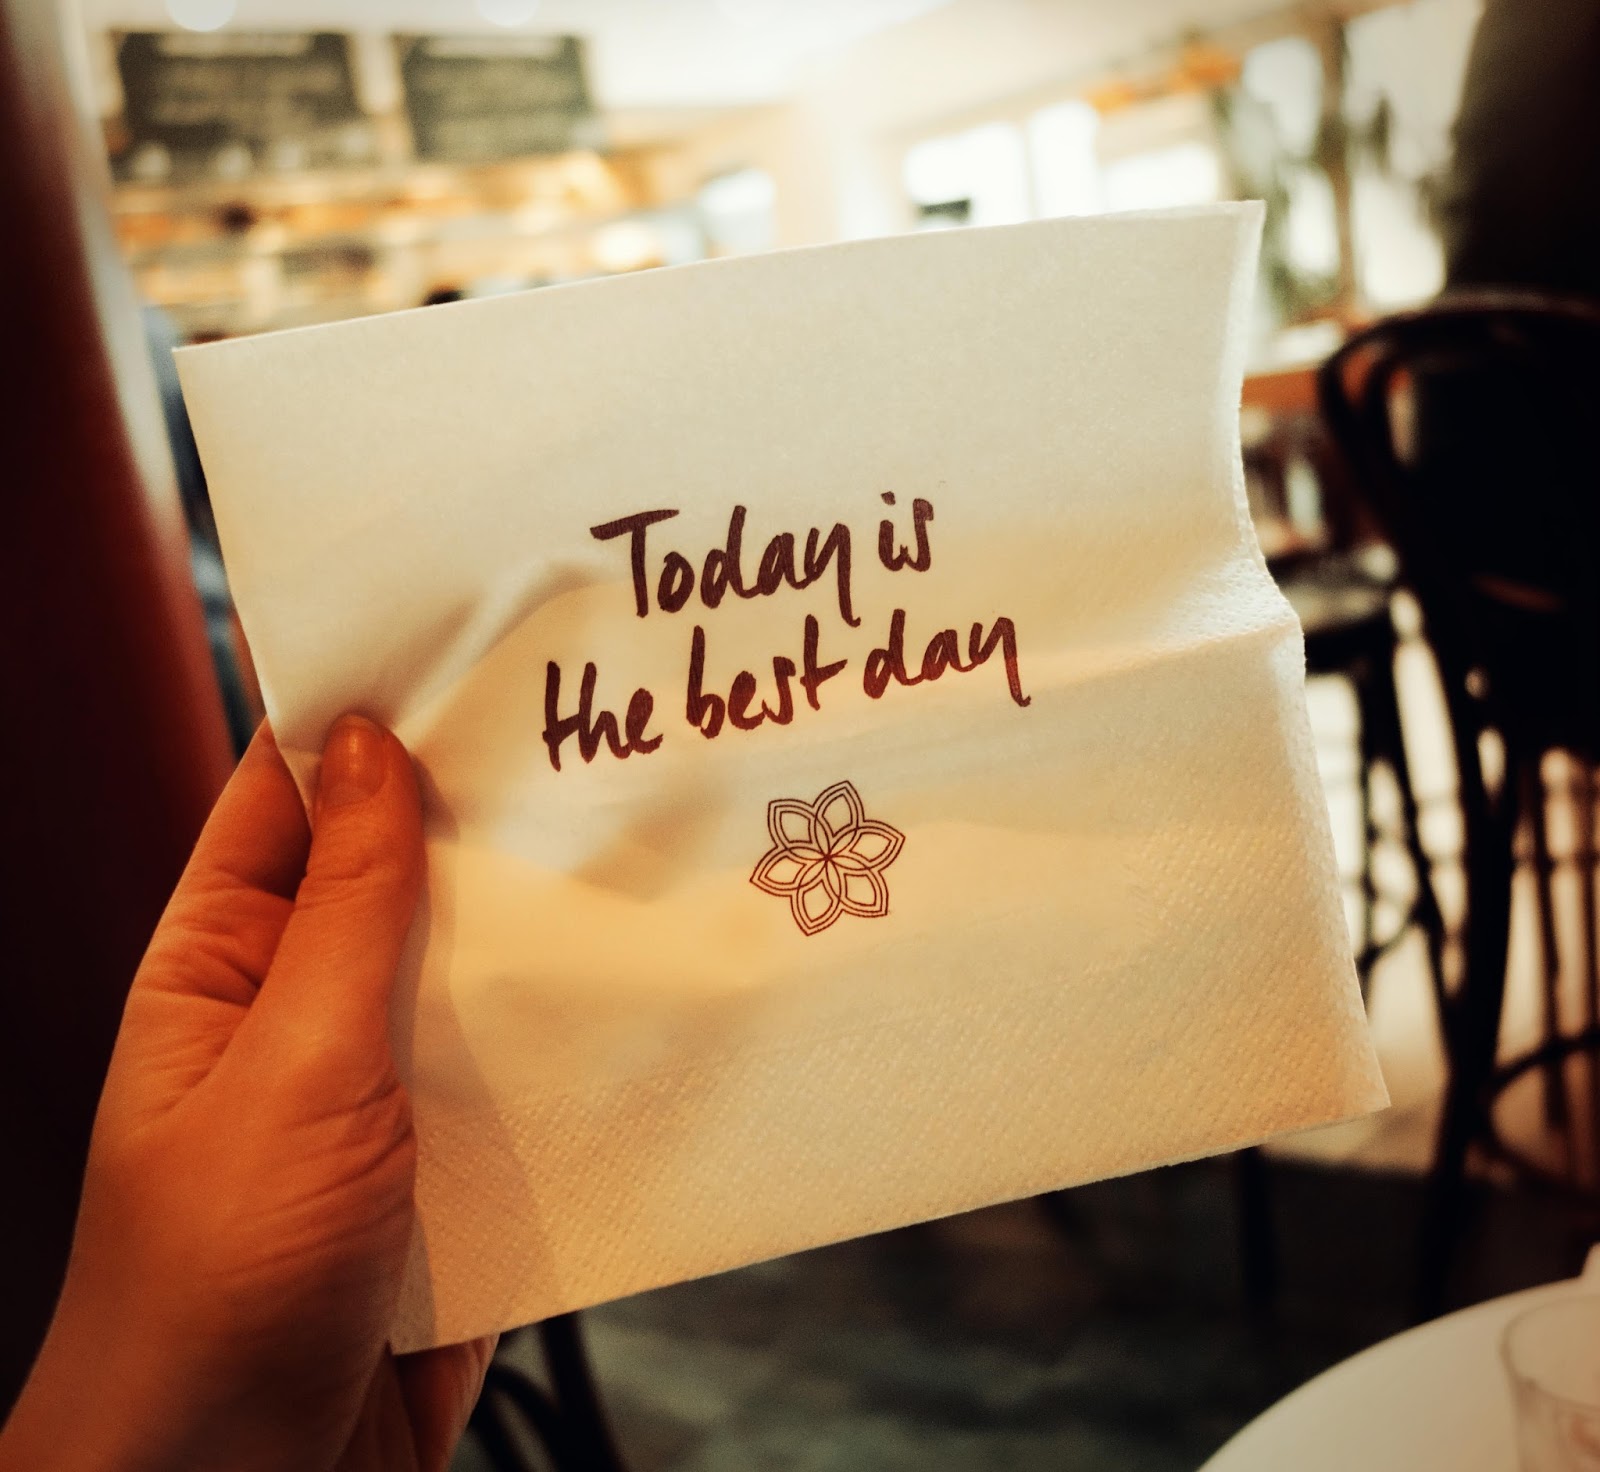 Today is
the best day